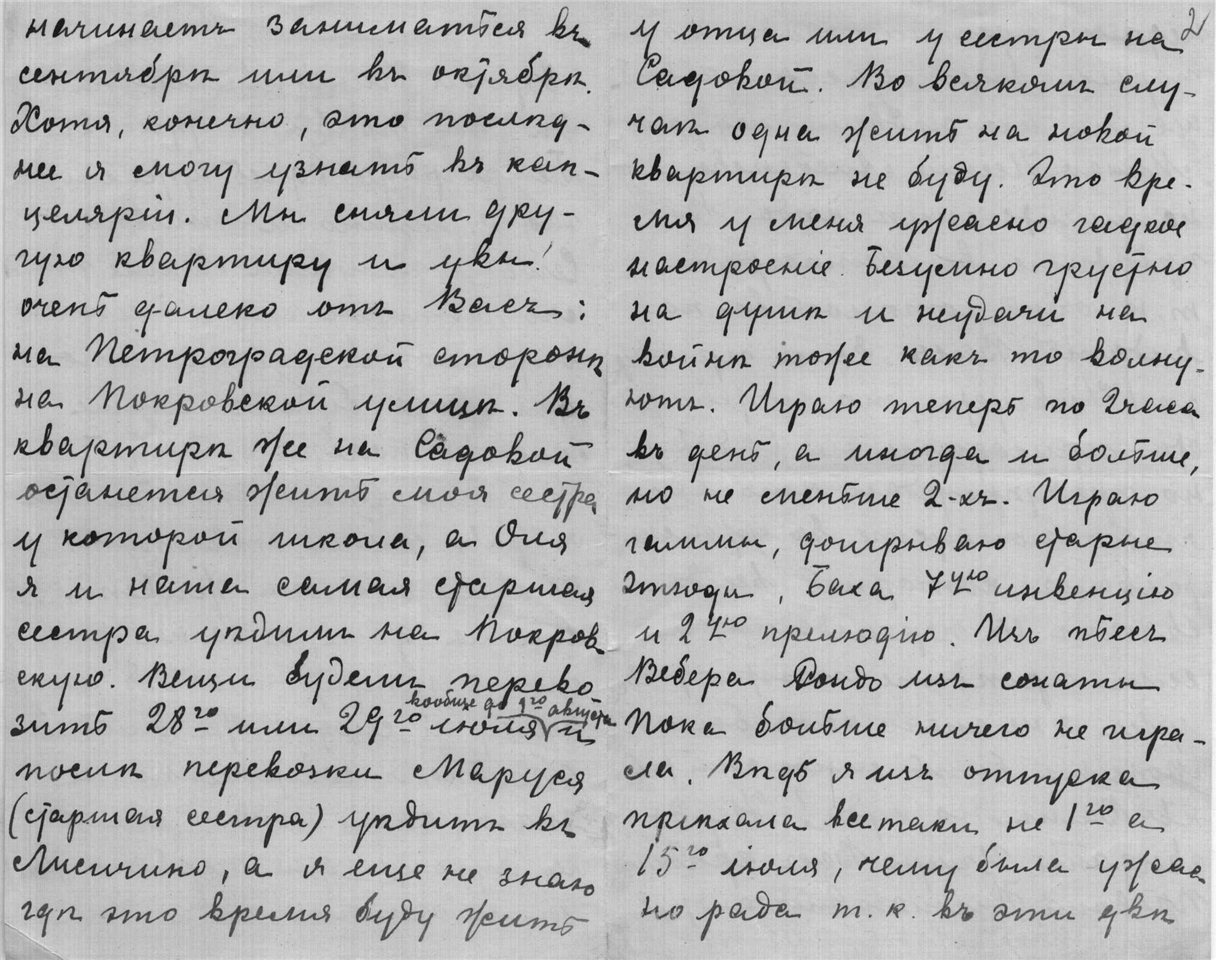 начинаетъ заниматься въ
сентябрѣ или въ октябрѣ.
Хотя, конечно, это послѣд-
нее я могу узнать въ кан-
целяріи. Мы сняли дру-
гую квартиру и увы!
очень далеко отъ Васъ:
на Петроградской сторонѣ
на Покровской улицѣ. Въ
квартирѣ же на Садовой
останется жить моя сестра
у которой школа, а Оля
я и наша самая старшая
сестра уѣдимъ на Покров
скую. Вещи будемъ перево
вообще до 1го августа
зить 28го или 29го июля и
послѣ перевозки Маруся
(старшая сестра) уѣдитъ въ
Лисичино, а я еще не знаю
гдѣ это время буду жить
2
у отца или у сестры на
Садовой. Во всякомъ слу-
чаѣ одна жить на новой
квартирѣ не буду. Это вре-
мя у меня ужасно гадкое
настроеніе. Безумно грустно
на душѣ и неудачи на
войнѣ тоже какъ то волну-
ютъ. Играю теперь по 2 часа
въ день, а иногда и больше,
но не меньше 2-хъ. Играю
гаммы, доигрываю старые
этюды, Баха 7ую инвенцію
и 2ую прелюдію. Изъ пьесъ
Вебера Рондо изъ сонаты
Пока больше ничего не игра-
ла. Вѣдь я изъ отпуска
пріѣхала все таки не 1го а
15го июля, чему была ужас
но рада т. к. въ эти двѣ